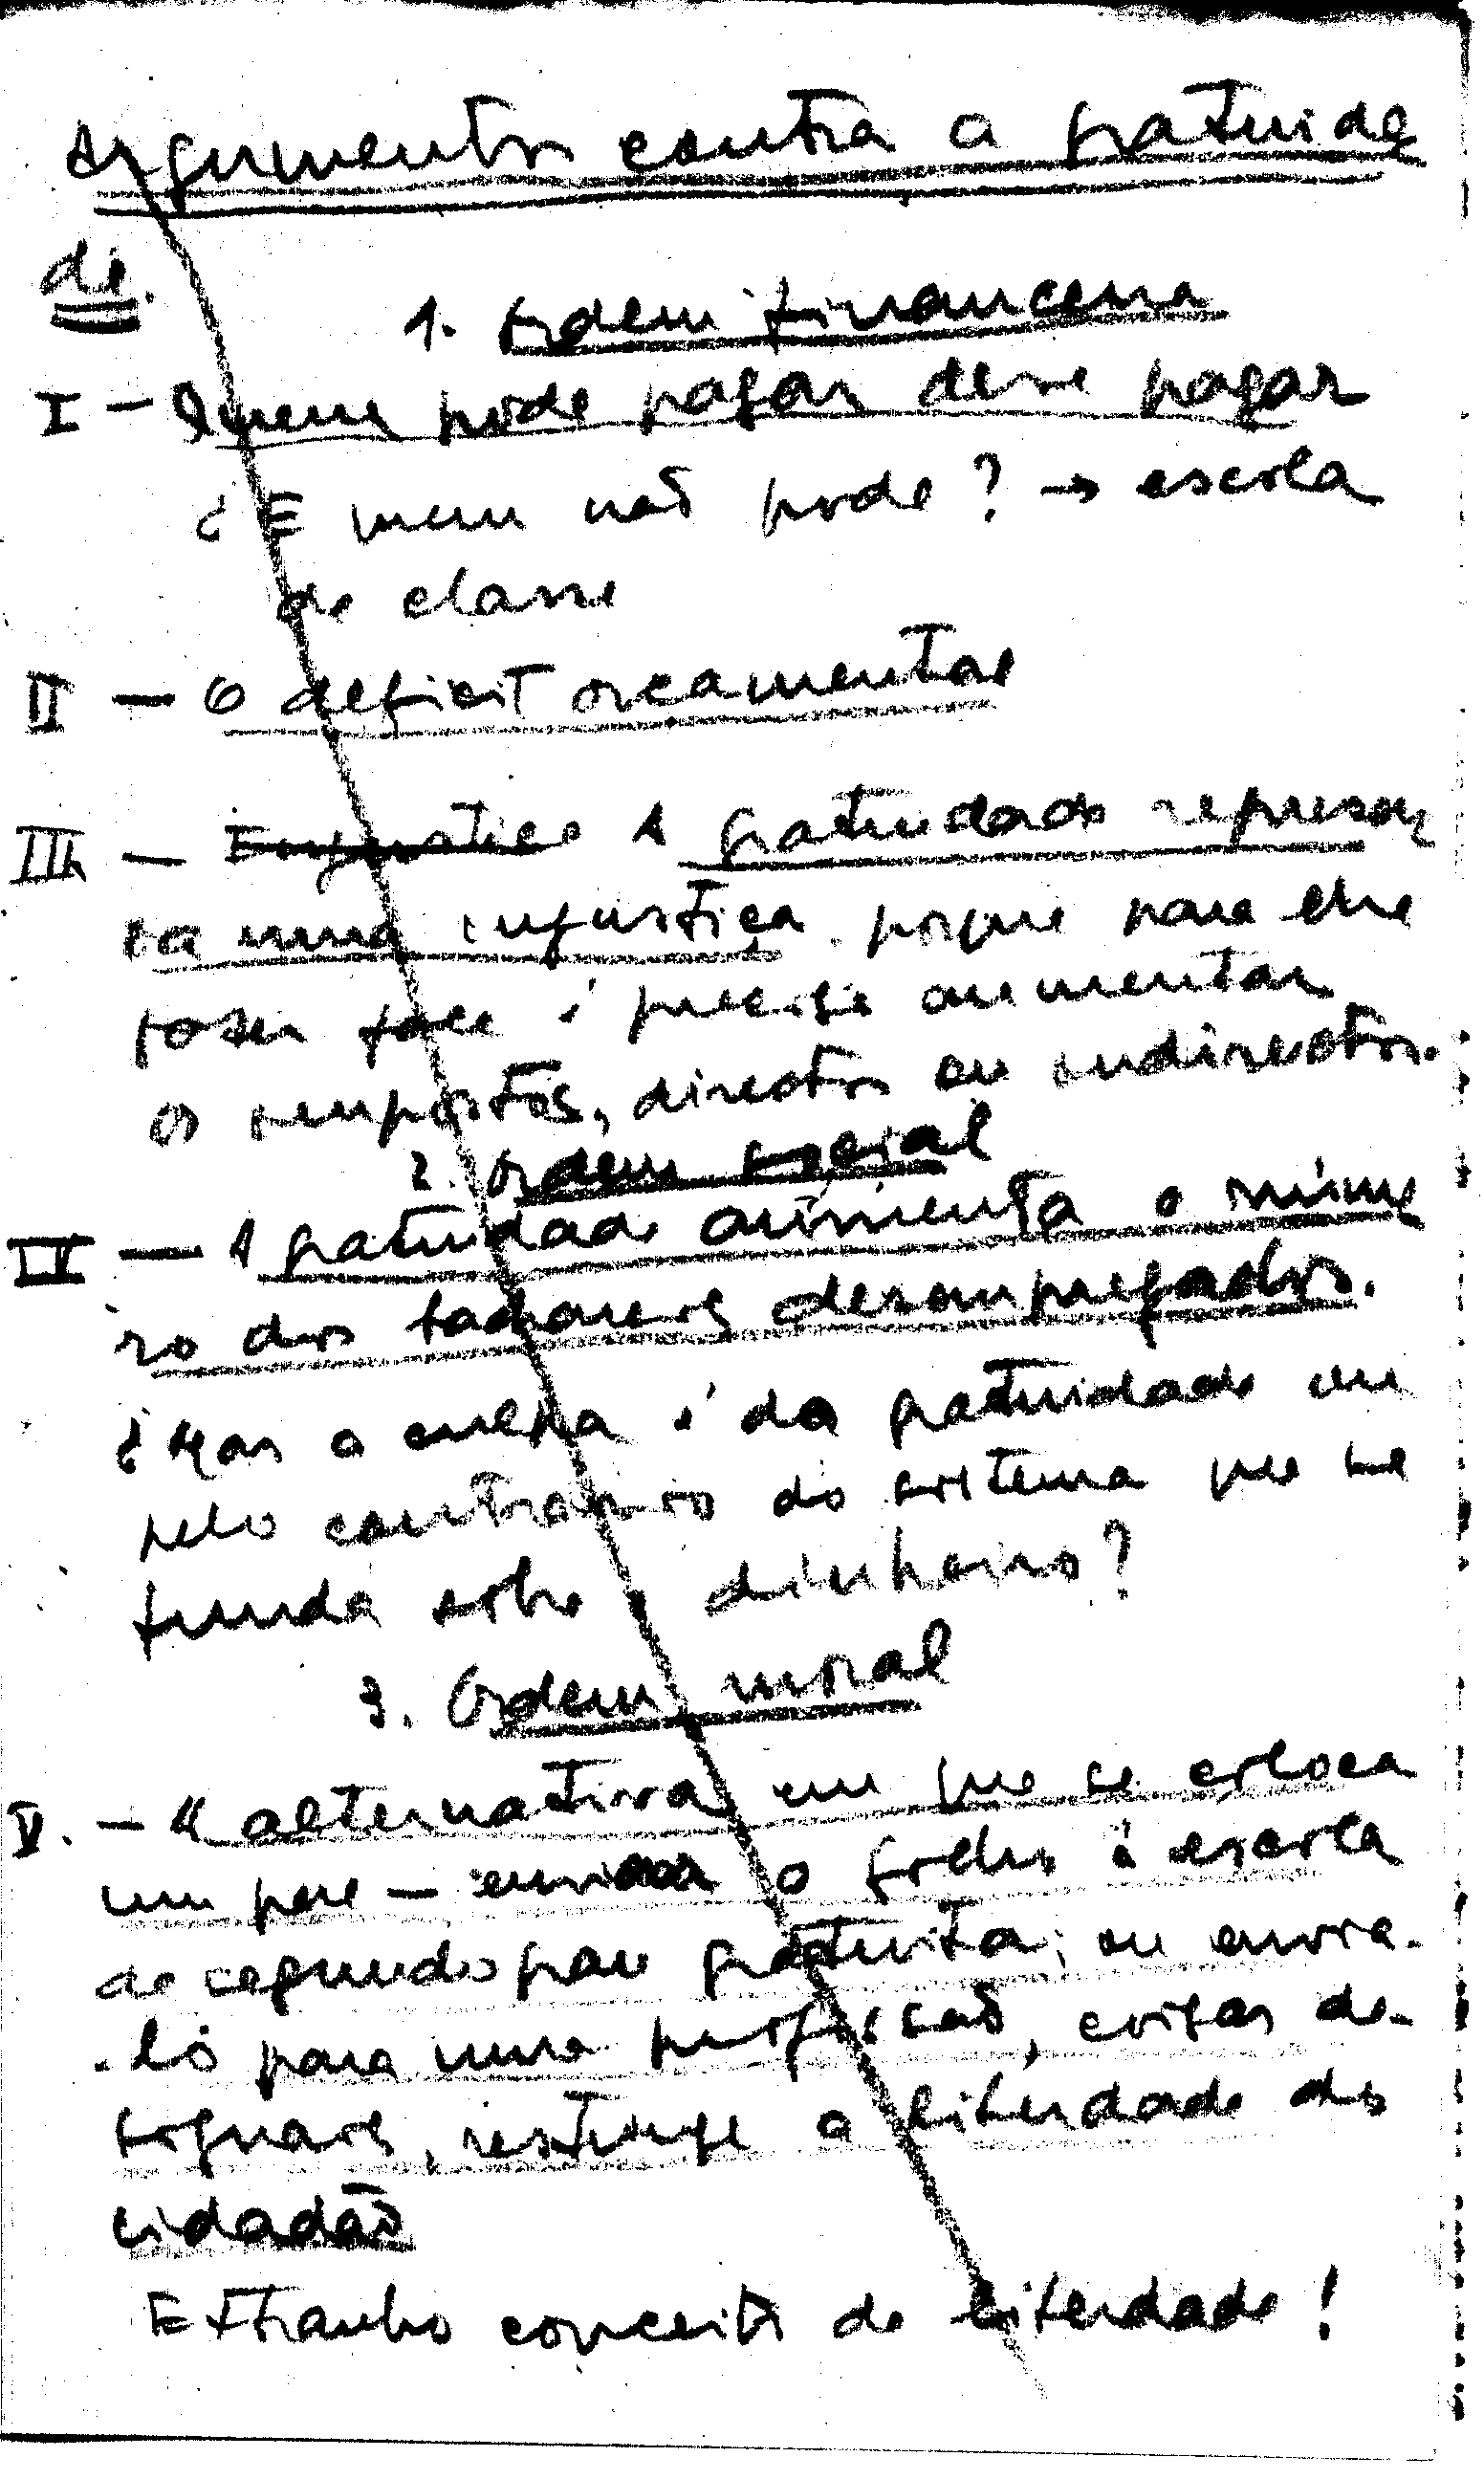 Argumentos contra a gratuida
de.
1. Ordem financeira
I - Quem pode pagar deve pagar
¿E quem não pode? → escola
de classe
II - O deficit orçamental
III - Injustiça A gratuidade represen
ta uma injustiça porque para ela
fazer face é preciso aumentar
os impostos, directos ou indirectos.
2. Ordem social
IV - A gratuidade aumenta o núme
ro dos bachareis desempregados.
¿Mas a culpa é da gratuidade ou
pelo contrario do sistema que se
funda sobre o dinheiro?
3. Ordem moral
V. - A alternativa em que se coloca
um pae - enviar o filho á escola
de segundo grau gratuita; ou envia-
-lo para uma profissão, evitar de-
restringe a liberdade do
cidadão
Extranho conceito de liberdade!